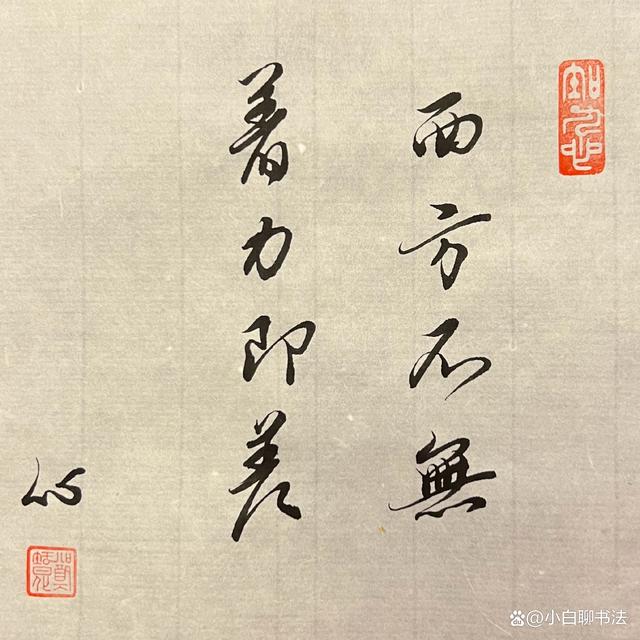 西方不無
着力即差
@小白聊书法